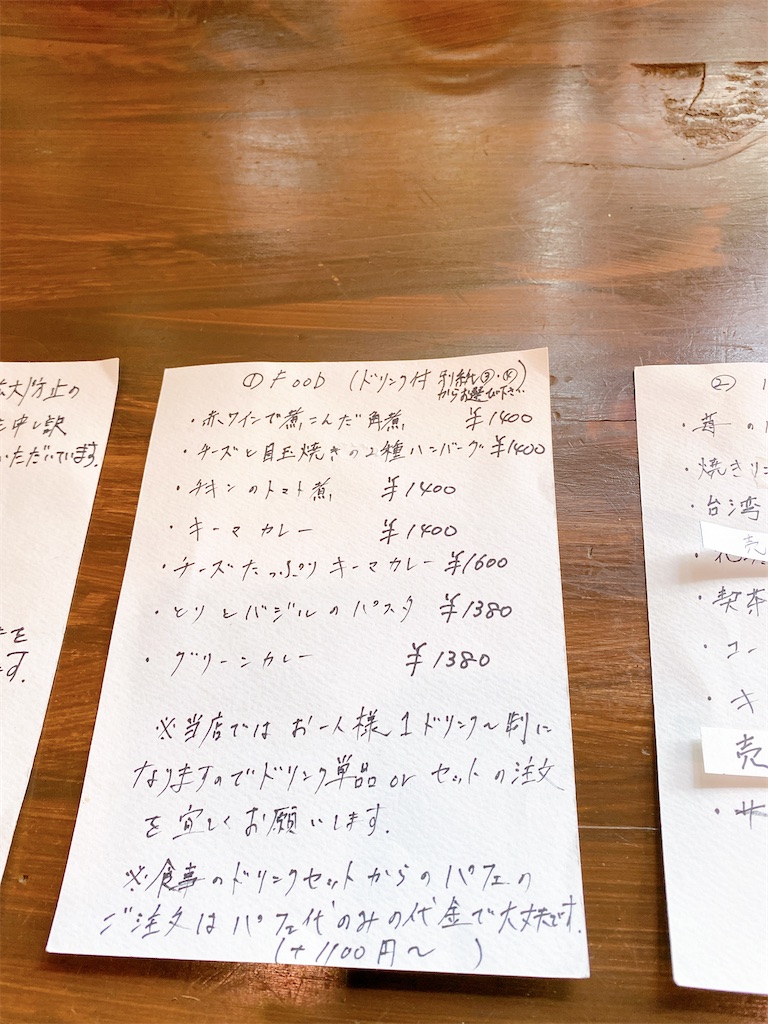 広大防止の
申し訳
いただいています。
を
す。
① Food (ドリンク付 別紙③・④
からお選び下さい)
・赤ワインで煮こんだ角煮 ¥1400
・チーズと目玉焼きの2種ハンバーグ ¥1400
・チキンのトマト煮 ¥1400
・キーマカレー ¥1400
・チーズたっぷりキーマカレー ¥1600
・とりとバジルのパスタ ¥1380
・グリーンカレー ¥1380
※当店ではお一人様1ドリンク〜制に
なりますのでドリンク単品orセットの注文
を宜しくお願いします。
※食事のドリンクセットからのパフェの
ご注文はパフェ代のみの代金で大丈夫です。
(+1100円〜 )
②
・苺の
・焼きリン
・台湾
売
・喫茶
・コー
・キ
売
・サ